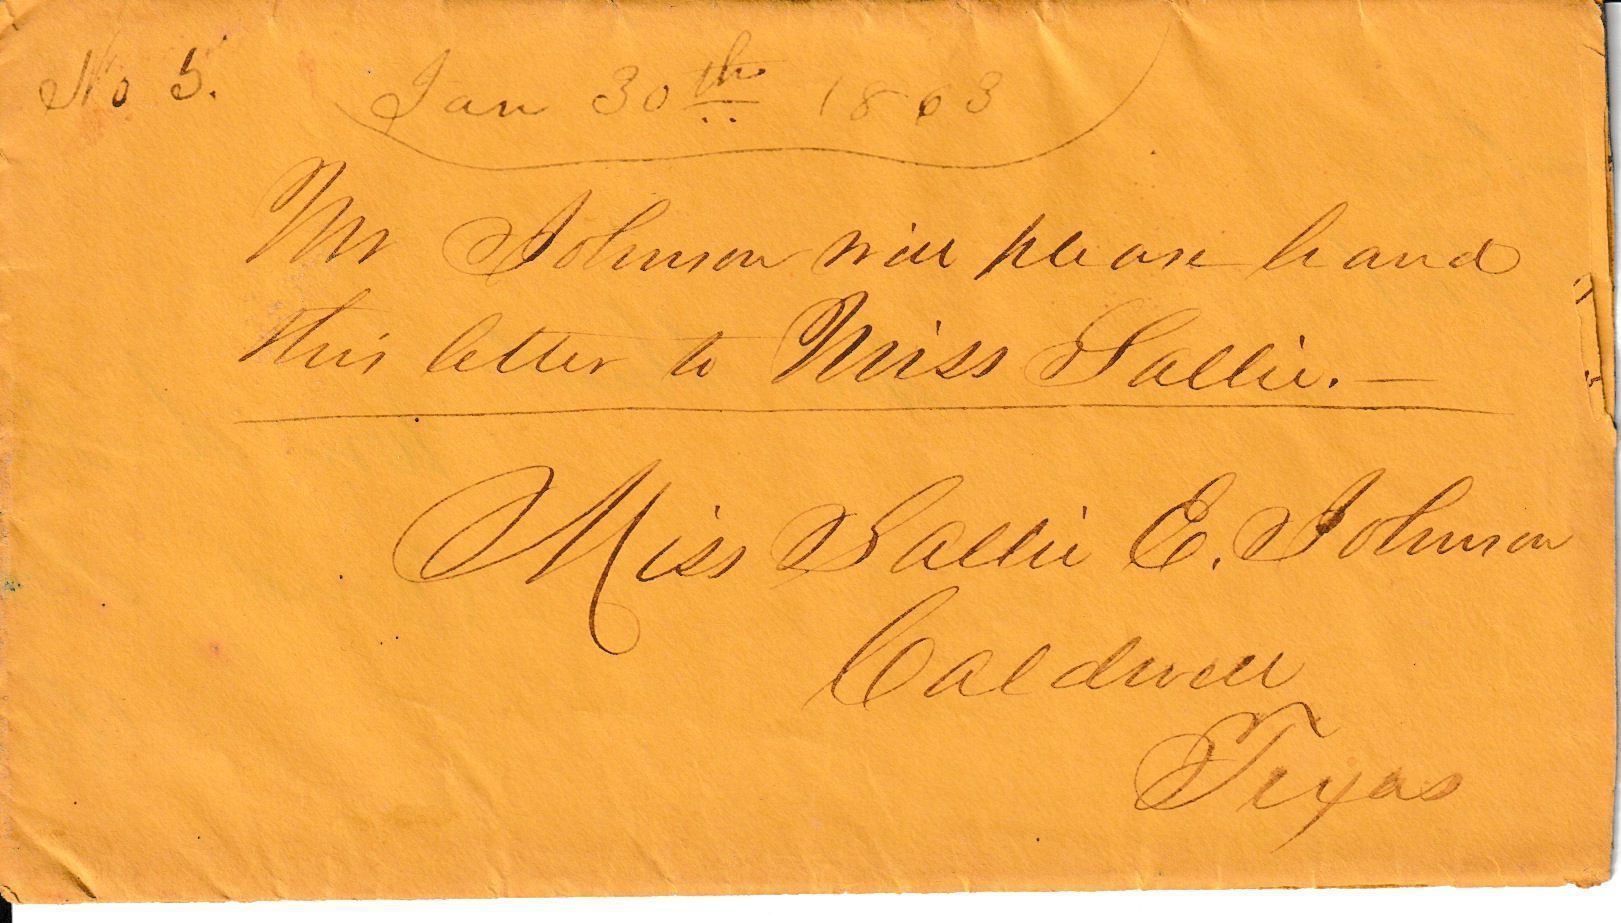 No 5. Jan 30th 1863
Mr Johnson will please hand
this letter to Miss Sallie. —
Miss Sallie E. Johnson
Caldwell
Texas